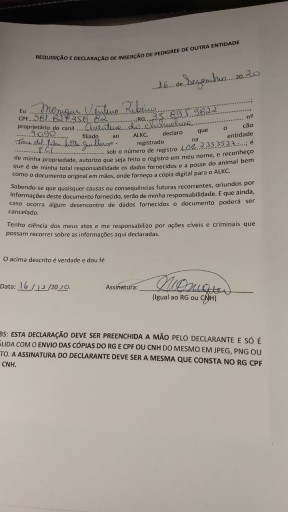 REQUISIÇÃO E DECLARAÇÃO DE INSERÇÃO DE PEDIGREE DE OUTRA ENTIDADE
16 de Dezembro 2020
Eu Monique Ribeiro
CPF RG nº
proprietário de canil
filiado ao ALKC, declaro que o cão
registrado na entidade
sob o número de registro é
de minha propriedade, autorizo que seja feito o registro em meu nome, e reconheço
que é de minha total responsabilidade os dados fornecidos e a posse do animal bem
como o documento original em mãos, onde forneço a cópia digital para o ALKC.
Sabendo-se que quaisquer causas ou consequências futuras recorrentes, oriundos por
informações deste documento fornecido, serão de minha responsabilidade. E que ainda,
caso ocorra algum desencontro de dados fornecidos o documento poderá ser
cancelado.
Tenho ciência dos meus atos e me responsabilizo por ações cíveis e criminais que
possam recorrer sobre as informações aqui declaradas.
O acima descrito é verdade e dou fé
Data: 16/12/2020. Assinatura:
(Igual ao RG ou CNH)
BS: ESTA DECLARAÇÃO DEVE SER PREENCHIDA A MÃO PELO DECLARANTE E SÓ É
ÁLIDA COM O ENVIO DAS CÓPIAS DO RG E CPF OU CNH DO MESMO EM JPEG, PNG OU
TO. A ASSINATURA DO DECLARANTE DEVE SER A MESMA QUE CONSTA NO RG CPF
CNH.